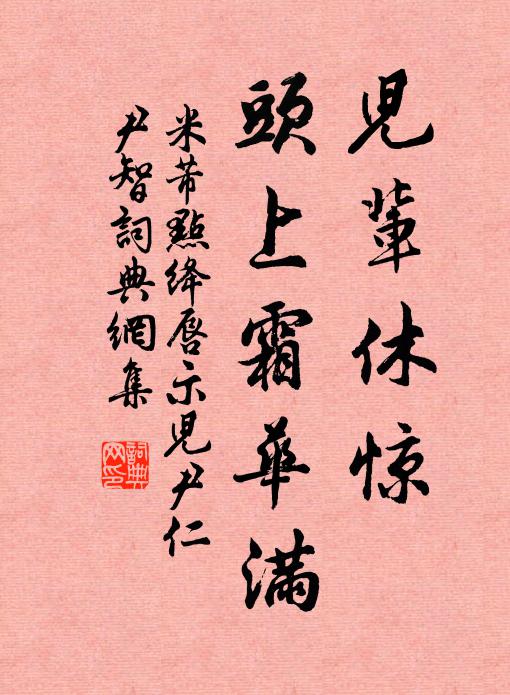 兒輩休惊
頭上霜華滿
米芾點绛唇示兒尹仁
尹智詞典網集
詞典
网印